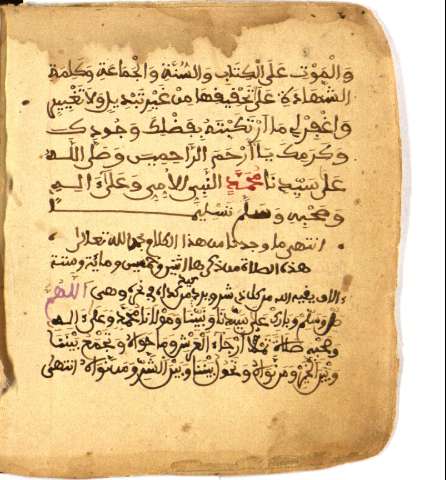 وَالْمَوْتِ عَلَى الْكِتَابِ وَالسُّنَّةِ وَالْجَمَاعَةِ وَكَلِمَةِ
الشَّهَادَةِ عَلَى تَحْقِيقِهَا مِنْ غَيْرِ تَبْدِيلٍ وَلَا تَغْيِيرٍ
وَاغْفِرْ لِي مَا ارْتَكَبْتُهُ بِفَضْلِكَ وَجُودِكَ
وَكَرَمِكَ يَا أَرْحَمَ الرَّاحِمِينَ وَصَلَّى اللَّهُ
عَلَى سَيِّدِنَا مُحَمَّدٍ النَّبِيِّ الْأُمِّيِّ وَعَلَى آلِهِ
وَصَحْبِهِ وَسَلَّمَ تَسْلِيمًا
انتهى ما وجدنا من هذا الكلام وحمد الله تعالى
هذه الصلاة من ذكرها اثنين وخمسين ومائة وستة
الله من كل شر وهي اللهم
صل وسلم وبارك على سيدنا ونبينا ومولانا محمد وعلى آله
وصحبه صلاة تملأ أرجاء العرش وما حواه وتجمع بيننا
وبين الخير ومن نواه وتحول بيننا وبين الشر ومن نواه انتهى